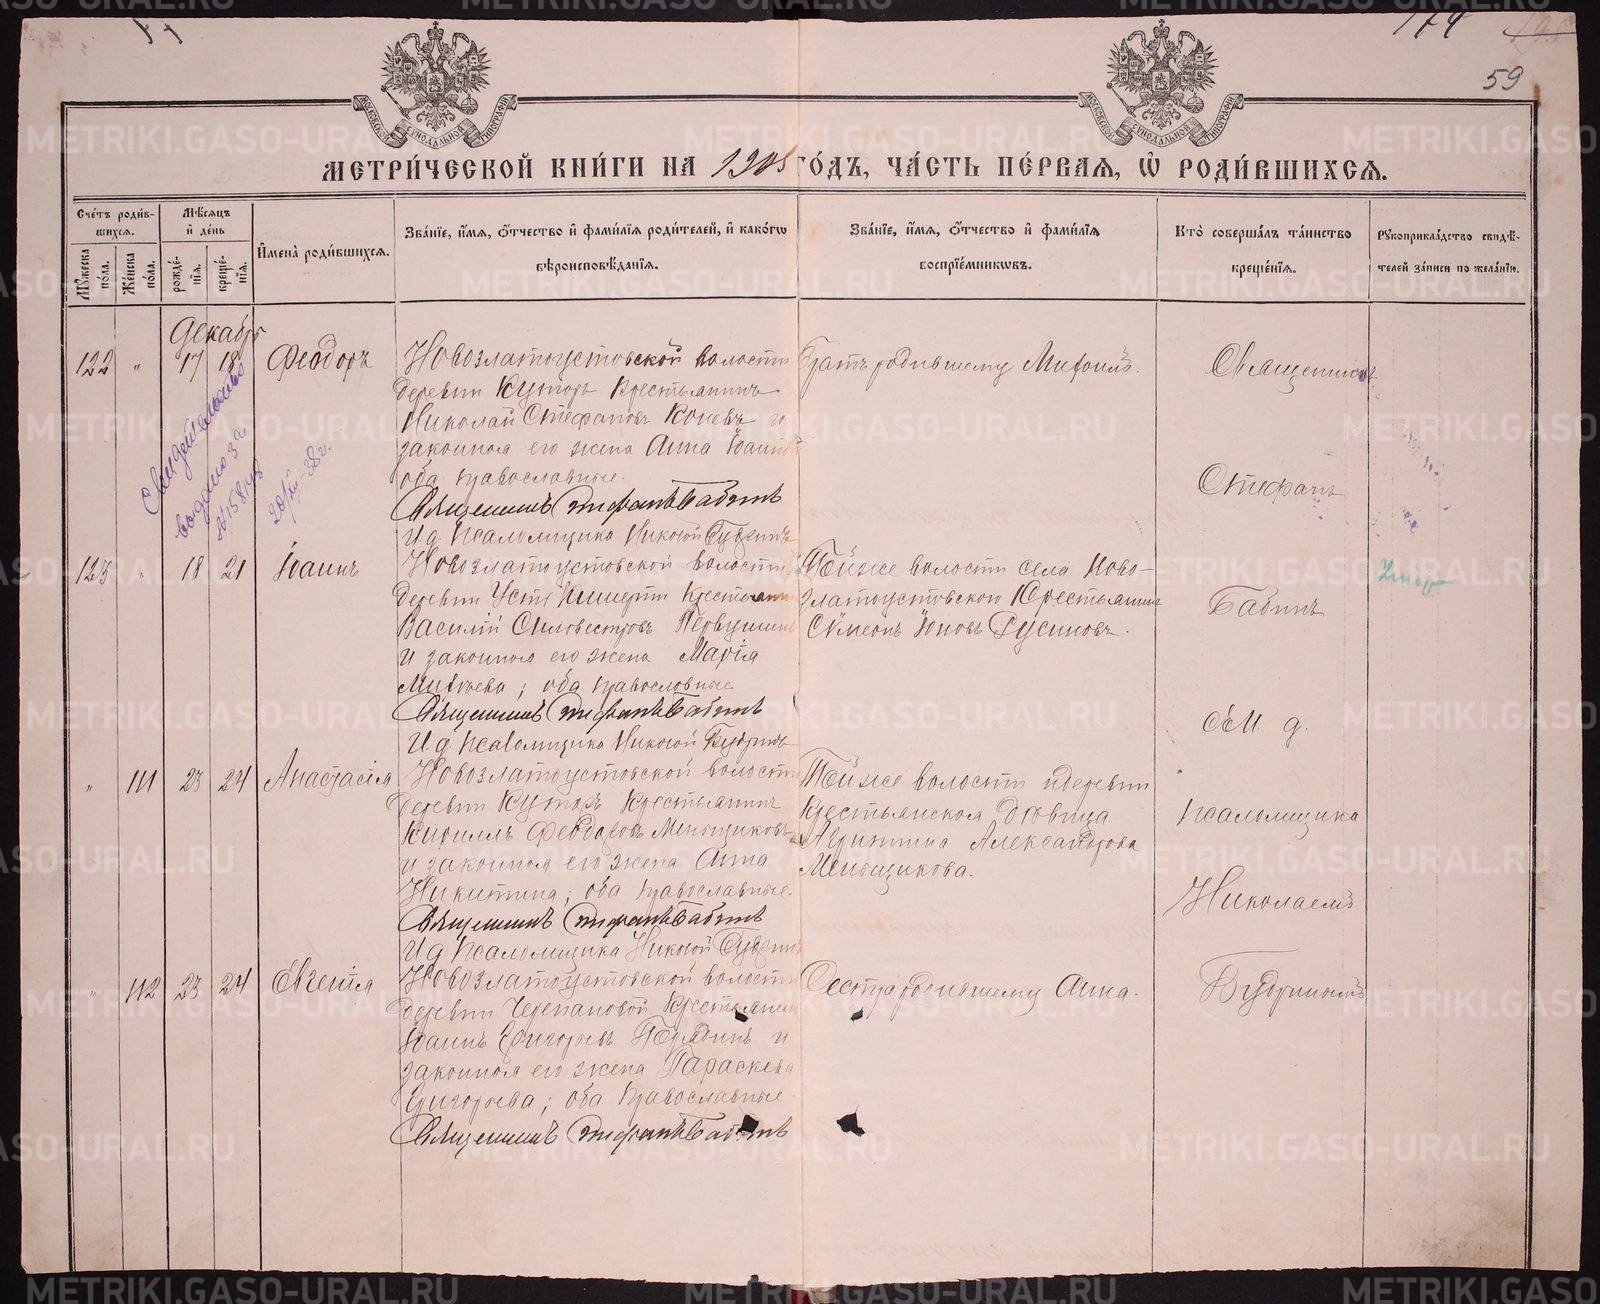 174
59
МОСКОВСКОЙ СУНОДАЛЬНОЙ ТИПОГРАФІИ
МОСКОВСКОЙ СУНОДАЛЬНОЙ ТИПОГРАФІИ
МЕТРИ́ЧЕСКОЙ КНИ́ГИ НА 1905 ГО́ДЪ, ЧА́СТЬ ПЕ́РВАѦ, Ѡ҆ РОДИ́ВШИХСѦ.
Сче́тъ роди́в-
шихсѧ.
Мѣ́сѧцъ
и҆ де́нь
Мꙋ́жеска
по́ла.
Же́нска
по́ла.
рожде́-
нїѧ.
креще́-
нїѧ.
И҆мена̀ роди́вшихсѧ.
Зва́нїе, и҆́мѧ, ѻ҆́тчество и҆ фами́лїѧ роди́телей, и҆ како́гѡ
вѣроисповѣ́данїѧ.
Зва́нїе, и҆́мѧ, ѻ҆́тчество и҆ фами́лїѧ
воспрїе́мникѡвъ.
Кто̀ соверша́лъ та́инство
креще́нїѧ.
Рꙋкоприкла́дство свидѣ́-
телей за́писи по жела́нїю.
Декабрь
122 " 17 18 Ѳеодоръ
Новозлатоустовской волости
деревни Куторъ Крестьянинъ
Николай Стефановъ Коневъ и
законная его жена Анна Іоаннова
оба православные.
Священникъ Стефанъ Бабинъ
И. д. Псаломщика Николай Будринъ
Братъ родившему Михаилъ.
Священникъ
Стефанъ
Бабинъ
съ И. д.
псаломщика
Николаемъ
Будринымъ
Свидетельство
выдано за
№ 158
38 г.
123 " 18 21 Іоаннъ
Новозлатоустовской волости
деревни Усть Кишерти Крестьянинъ
Василій Силовестровъ Первушинъ
и законная его жена Марія
оба православные
Священникъ Стефанъ Бабинъ
И. д. Псаломщика Николай Будринъ
Той же волости села Ново-
златоустовского Крестьянинъ
Сѵмеонъ Іоновъ Русиновъ.
" 111 23 24 Анастасія
Новозлатоустовской волости
деревни Куторъ Крестьянинъ
Кириллъ Ѳеодосовъ Меньщиковъ
и законная его жена Анна
Никитина; оба православные.
Священникъ Стефанъ Бабинъ
И. д. Псаломщика Николай Будринъ
Той же волости и деревни
крестьянская дѣвица
Агрипина Александрова
Меньщикова.
" 112 23 24 Евгенія
Новозлатоустовской волости
деревни Черепановой Крестьянинъ
Іоаннъ Григорьевъ и
законная его жена Параскева
Григорьева; оба православные
Священникъ Стефанъ Бабинъ
Сестра родившему Анна.
METRIKI.GASO-URAL.RU